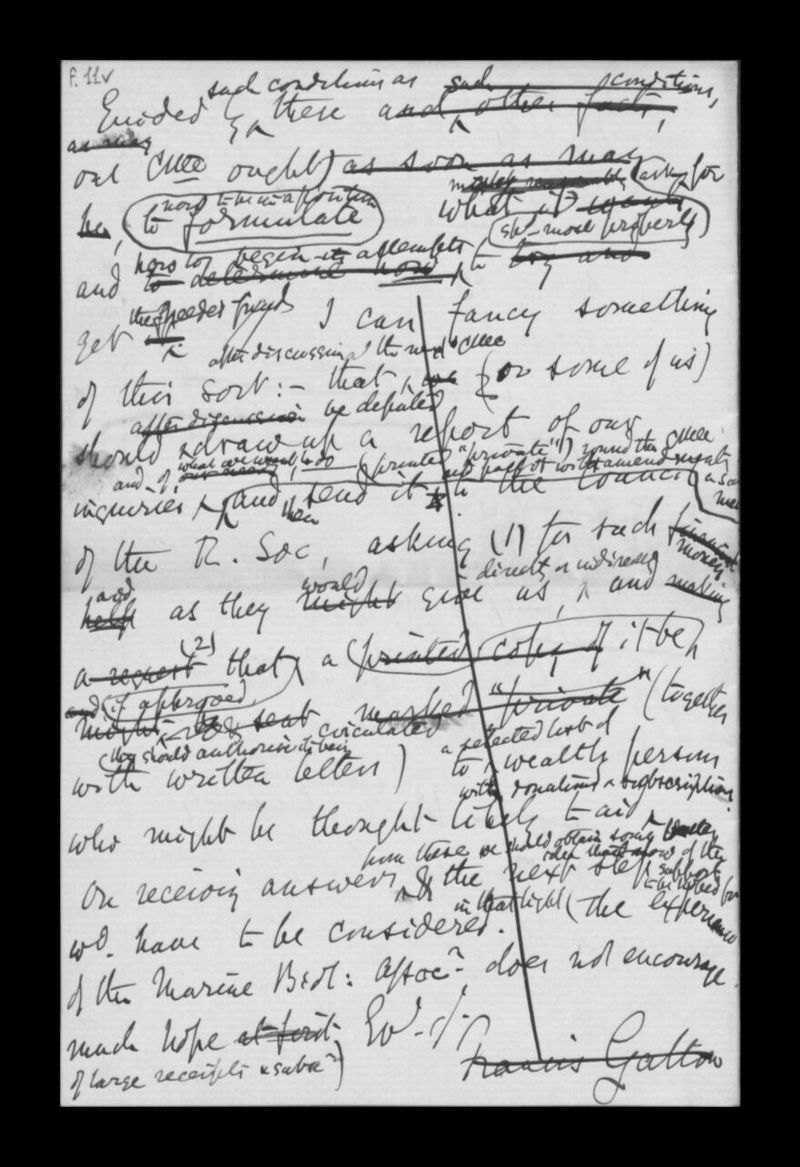 f. 11v
such conditions as such conditions,
Guided by these and other facts,
as may
our Cttee ought) as soon as may
be, now to be in a position to formulate what
ask for
shd most properly
and how to begin its attempts to determine how to try and
get the needed funds I can fancy something
after discussion, the next Cttee
of this sort:- that, we (or some of us)
after discussion be deputed
should draw up a report of our
and of what we want to do (printed "private") round the Cttee
inquiries, and then send it to the Council
of the R. Soc, asking (1) for such financial
money
directly or indirectly
help as they might would give us, and making
and
(2)
a request that, a (printed copy of it be,
and (if approved,
might be sent marked "private" (together
(they should authorise its being circulated
a selected list of
with written letters) to wealthy persons
with donations & subscriptions.
who might be thought likely to aid
from these we should obtain some
idea of the
support
to be hoped for
On receiving answers the next step
in that light (the experience
wd. have to be considered.
of the Marine Biol: Assocn. does not encourage
much hope at first. Evr. sy.
of large receipts & subscns)
Francis Galton